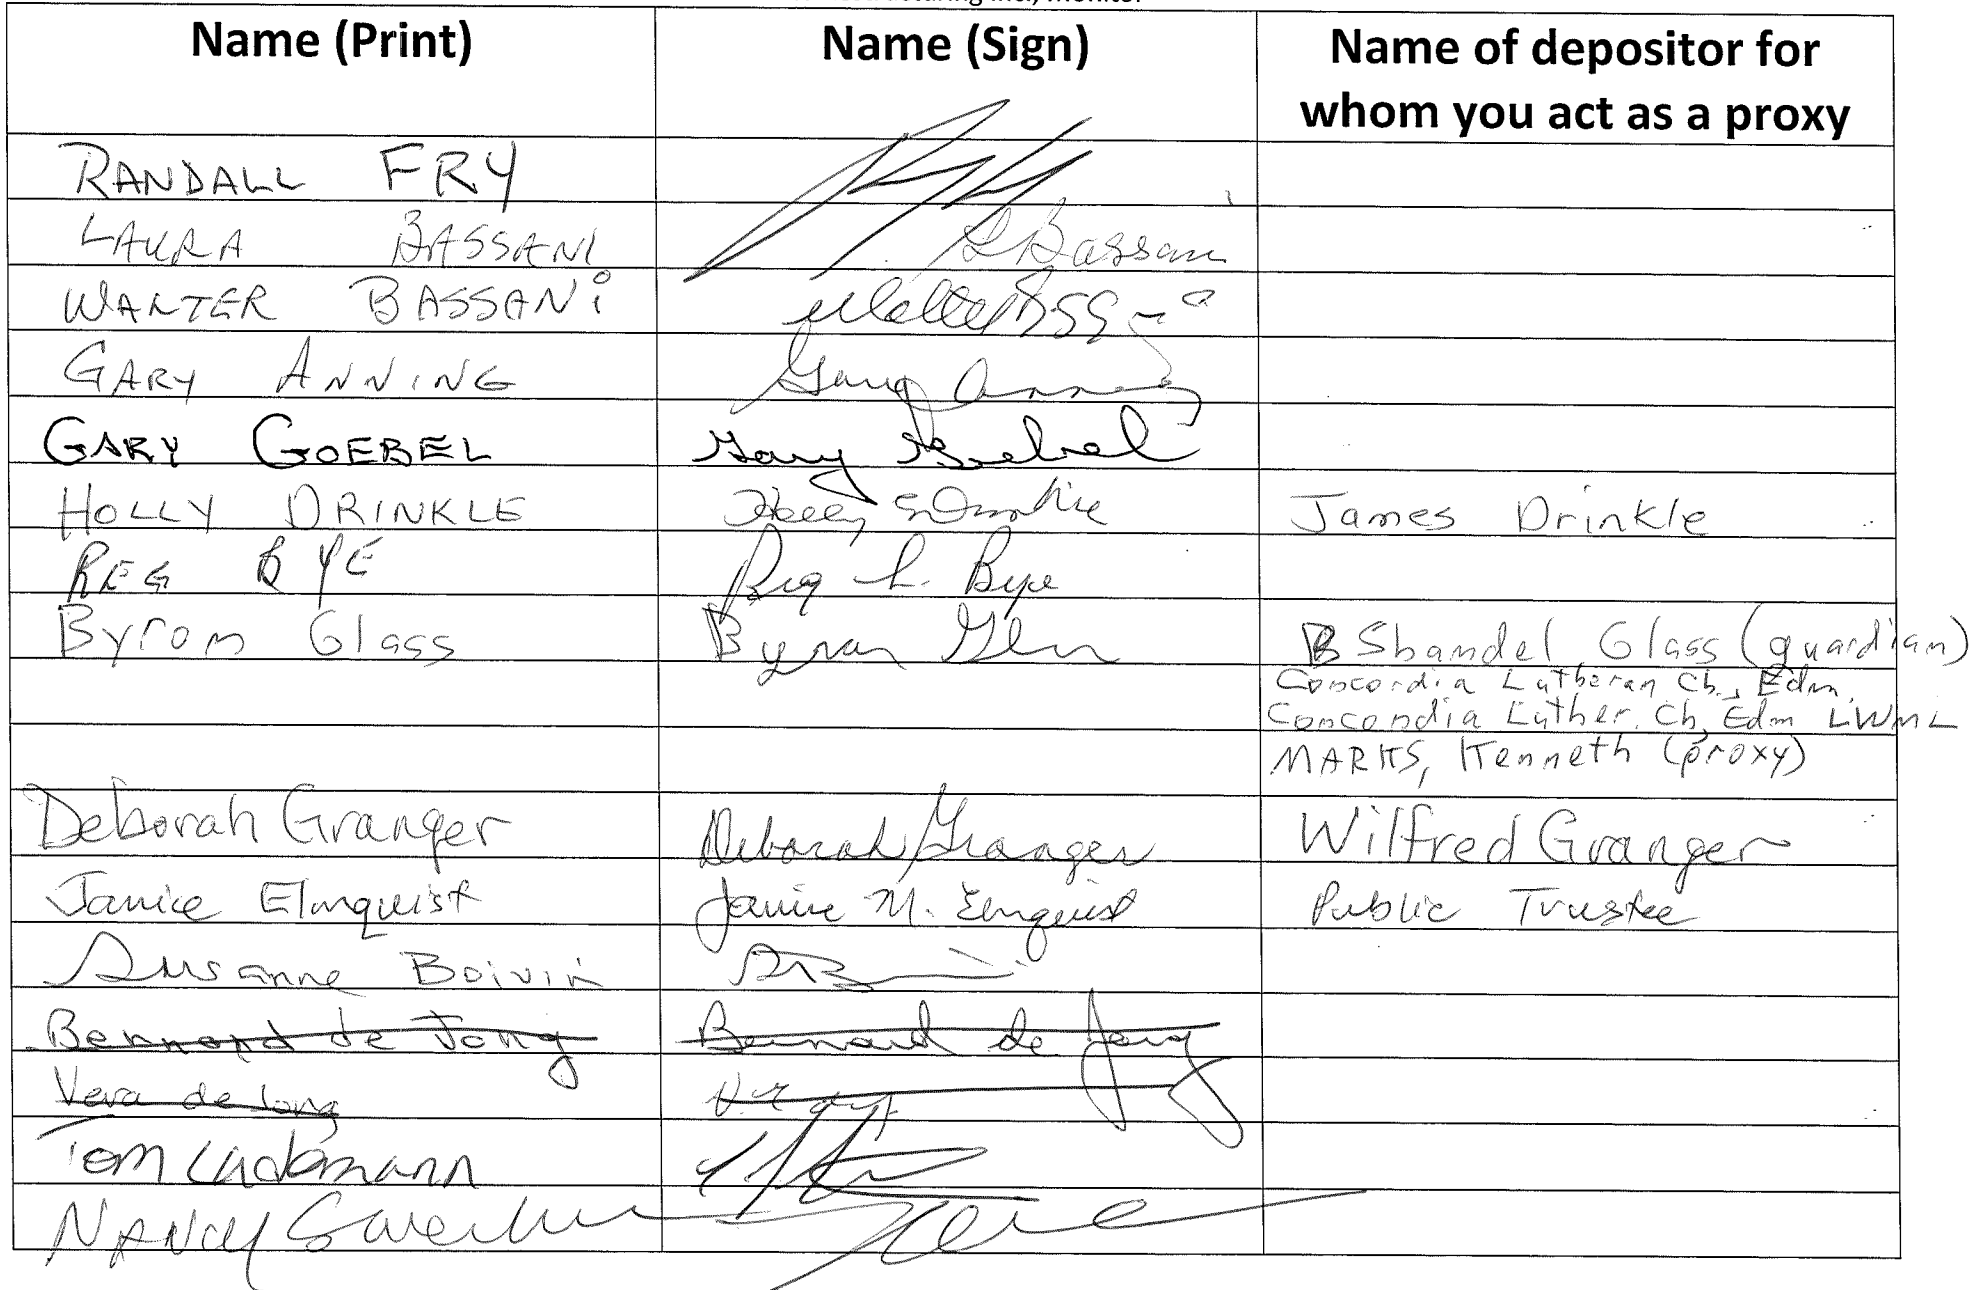 Name (Print) Name (Sign) Name of depositor for whom you act as a proxy
RANDALL FRY
LAURA BASSANI L Bassani
WALTER BASSANI
GARY ANNING Gary Anning
GARY GOEBEL Gary Goebel
HOLLY DRINKLE Holly Drinkle James Drinkle
REG BYE Reg L. Bye
Byrom Glass Byrom Glass B Shandel Glass (guardian)
Concordia Lutheran Ch., Edm.
Concordia Luther. Ch, Edm LWML
MARKS, Kenneth (proxy)
Deborah Granger Deborah Granger Wilfred Granger
Janice Elmquist Janice M. Elmquist Public Trustee
Susanne Boivin
Bernard de Jong Bernard de Jong
Vera de Jong
Tom Lademann
NANCY